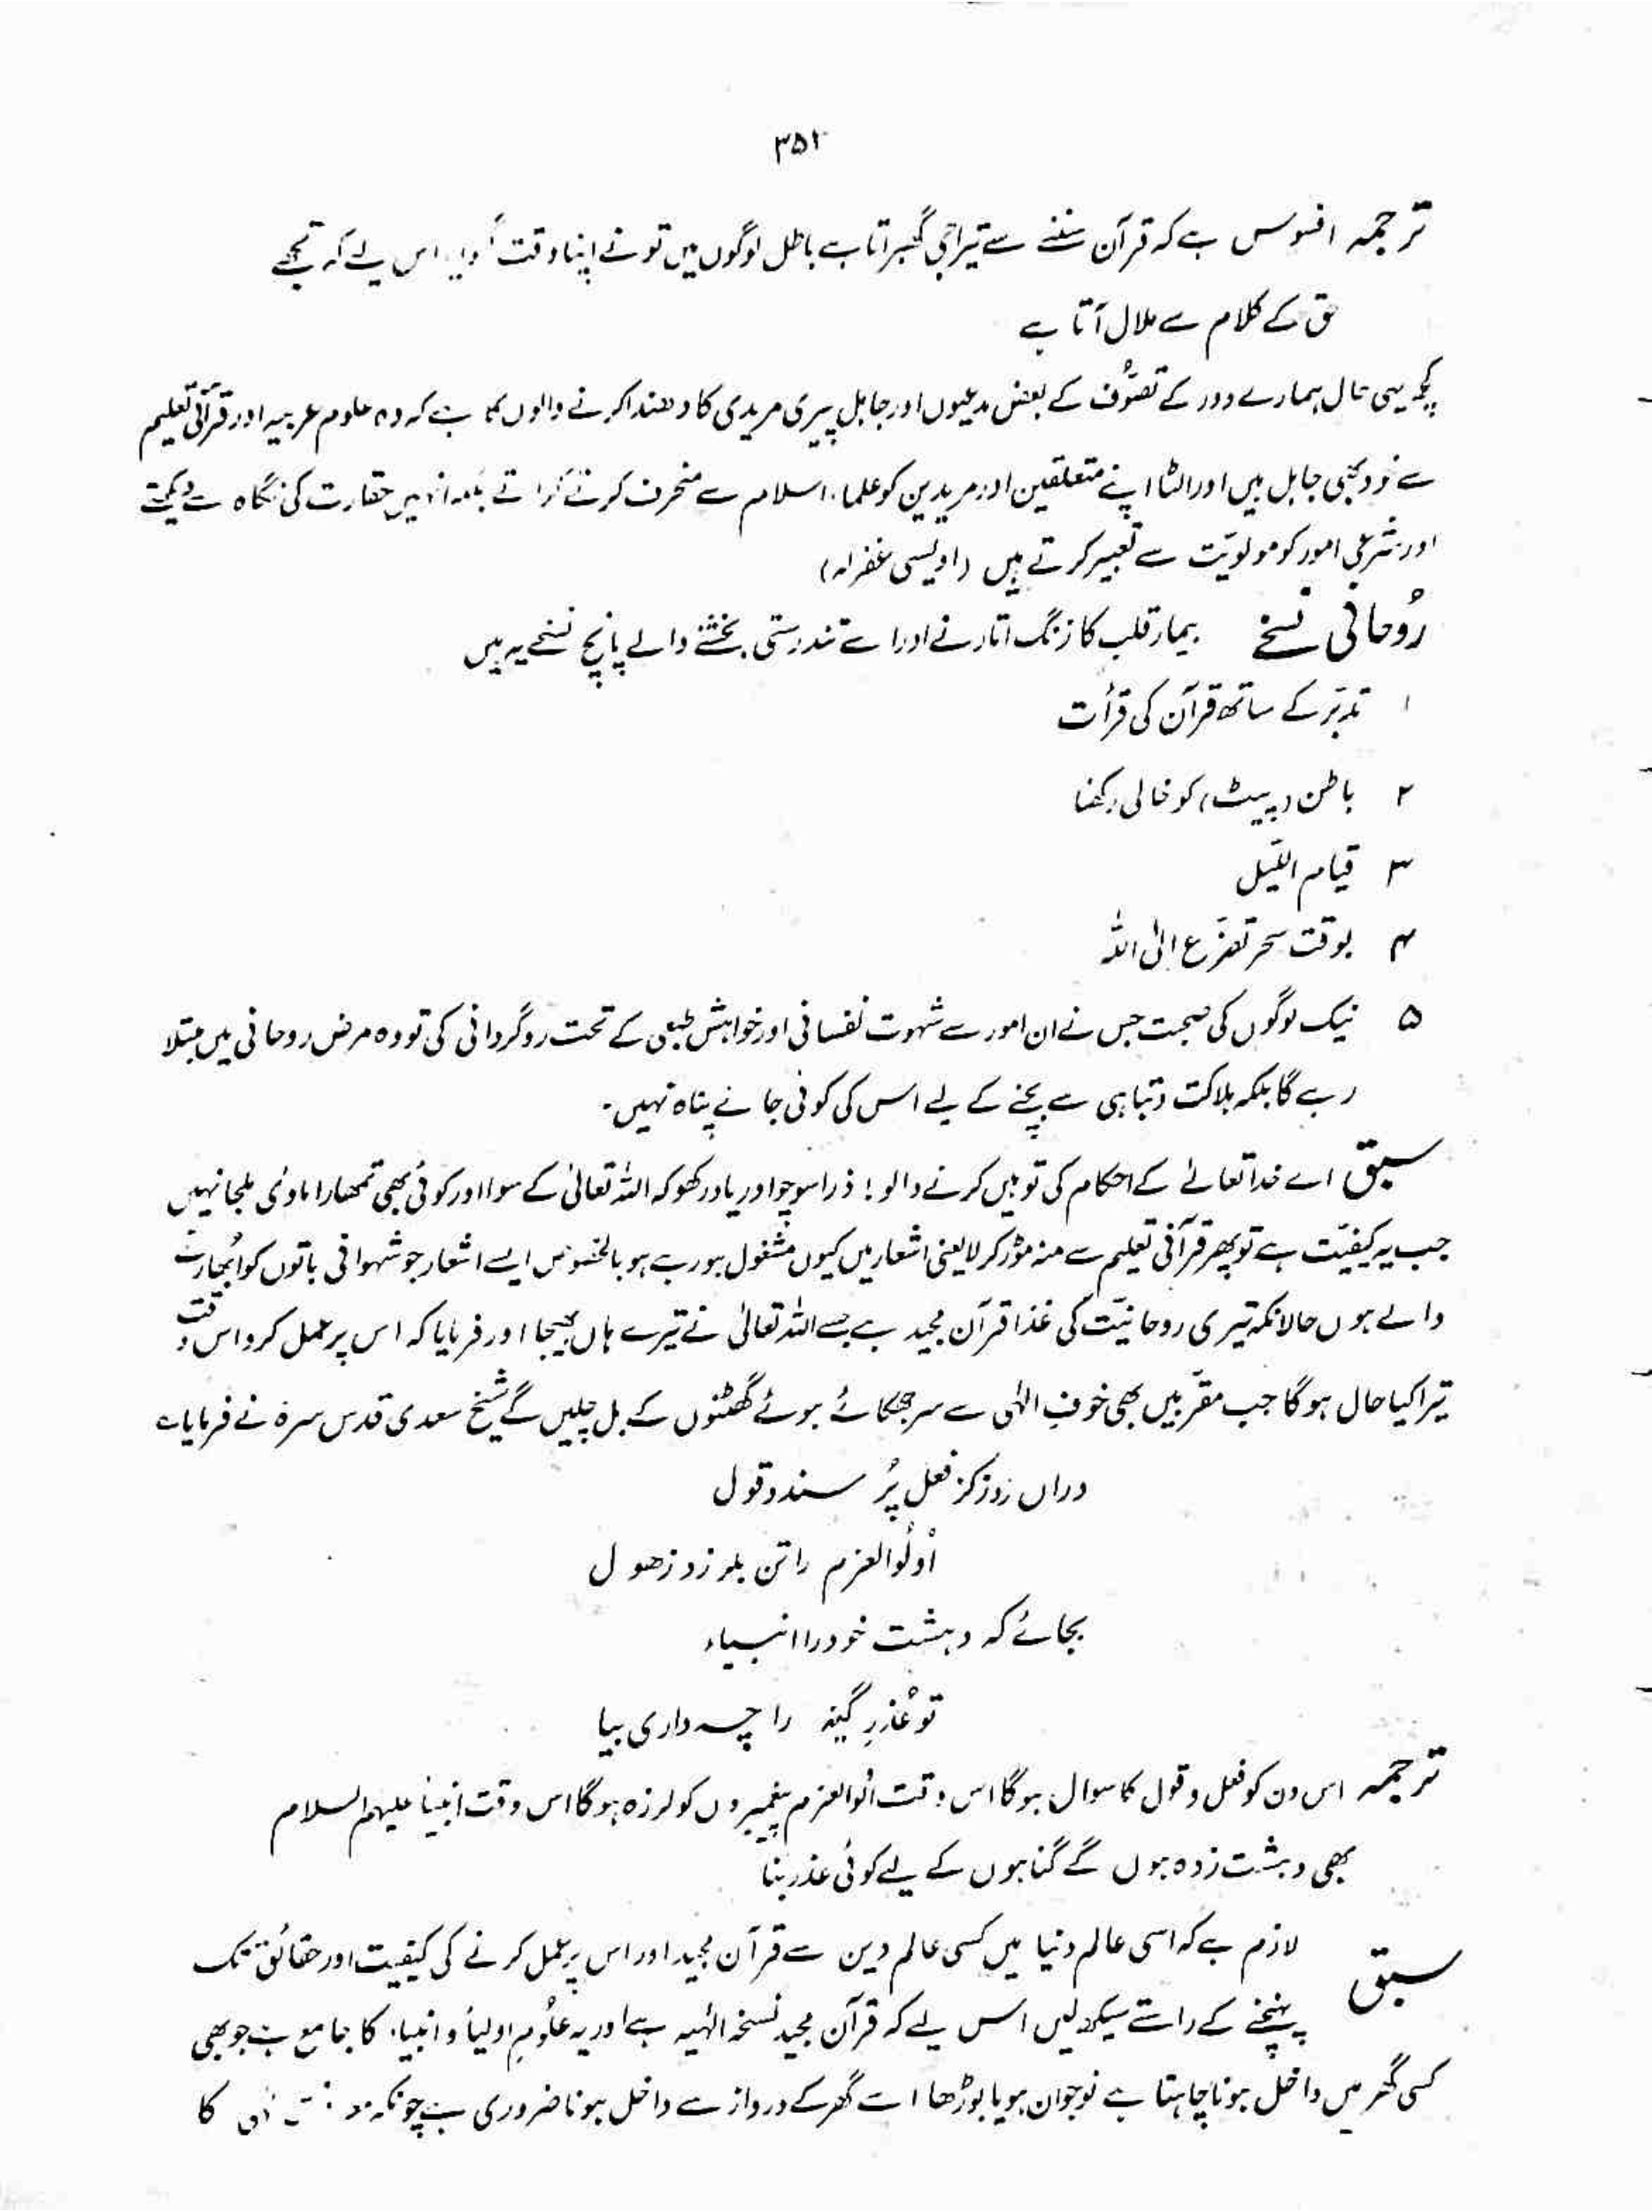 ۳۵۲
ترجمہ افسوس ہے کہ قرآن سننے سے تیرا جی گھبراتا ہے باطل لوگوں میں تو نے اپنا وقت اس لیے کہ تجھے
حق کے کلام سے ملال آتا ہے
کچھ یہی حال ہمارے دور کے تصوُّف کے بعض مدعیوں اور جاہل پیری مریدی کا دھندا کرنے والوں کا ہے کہ وہ علوم عربیہ اور قرآنی تعلیم
سے خود بھی جاہل ہیں اور الٹا اپنے متعلقین اور مریدین کو علماء اسلام سے منحرف کرتے کراتے بلکہ انہیں حقارت کی نگاہ سے دیکھتے
اور شرعی امور کو مولویّت سے تعبیر کرتے ہیں (اویسی غفرلہ)
رُوحانی نسخے بیمار قلب کا زنگ اتارنے اور اسے تندرستی بخشنے والے پانچ نسخے یہ ہیں
۱ تدبّر کے ساتھ قرآن کی قرأت
۲ باطن (پیٹ) کو خالی رکھنا
۳ قیام اللّیل
۴ بوقت سحر تضرّع الی اللہ
۵ نیک لوگوں کی صحبت جس نے ان امور سے شہوت نفسانی اور خواہش طبعی کے تحت روگردانی کی تو وہ مرض روحانی میں مبتلا
رہے گا بلکہ ہلاکت و تباہی سے بچنے کے لیے اس کی کوئی جائے پناہ نہیں۔
سبق اے خدا تعالےٰ کے احکام کی توہین کرنے والو! ذرا سوچو اور یاد رکھو کہ اللہ تعالیٰ کے سوا اور کوئی بھی تمھارا ماوٰی ملجا نہیں
جب یہ کیفیّت ہے تو پھر قرآنی تعلیم سے منہ موڑ کر لایعنی اشعار میں کیوں مشغول ہو رہے ہو بالخصوص ایسے اشعار جو شہوانی باتوں کو اُبھارنے
والے ہوں حالانکہ تیری روحانیّت کی غذا قرآن مجید ہے جسے اللہ تعالیٰ نے تیرے ہاں بھیجا اور فرمایا کہ اس پر عمل کرو اس وقت
تیرا کیا حال ہو گا جب مقرّبیں بھی خوفِ الٰہی سے سر جھکائے ہوئے گھٹنوں کے بل چلیں گے شیخ سعدی قدس سرہٗ نے فرمایا ؎
دراں روز کز فعل پُرسند و قول
اُولُوالعزم را تن بلرزد ز ھول
بجائے کہ دہشت خورد انبیاء
تو عُذرِ گنہ را چہ داری بیا
ترجمہ اس دن کو فعل و قول کا سوال ہو گا اس وقت اُلوالعزم پیغمبروں کو لرزہ ہو گا اس وقت انبیأ علیہم السلام
بھی دہشت زدہ ہوں گے گناہوں کے لیے کوئی عذر بتا
سبق لازم ہے کہ اسی عالم دنیا میں کسی عالم دین سے قرآن مجید اور اس پر عمل کرنے کی کیفیت اور حقائق تک
پہنچنے کے راستے سیکھ لیں اس لیے کہ قرآن مجید نسخہ الٰہیہ ہے اور یہ علُومِ اولیأ و انبیاء کا جامع ہے جو بھی
کسی گھر میں داخل ہونا چاہتا ہے نوجوان ہو یا بوڑھا اسے گھر کے دروازے سے داخل ہونا ضروری ہے چونکہ کا